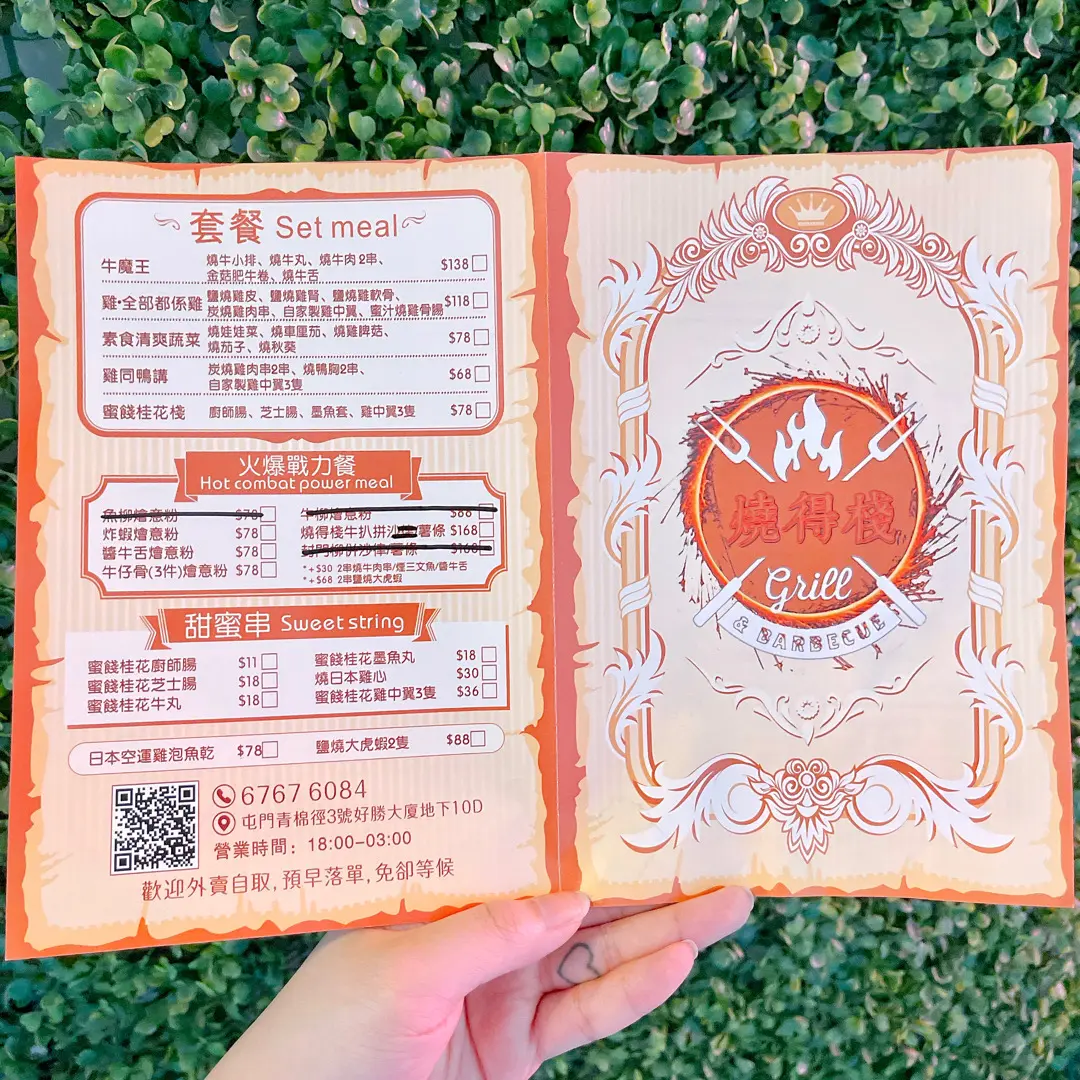 套餐 Set meal
牛魔王 燒牛小排、燒牛丸、燒牛肉2串、 $138
金菇肥牛卷、燒牛舌
雞·全部都係雞 鹽燒雞皮、鹽燒雞腎、鹽燒雞軟骨、 $118
炭燒雞肉串、自家製雞中翼、蜜汁燒雞骨腸
素食清爽蔬菜 燒娃娃菜、燒車厘茄、燒雞脾菇、 $78
燒茄子、燒秋葵
雞同鴨講 炭燒雞肉串2串、燒鴨胸2串、 $68
自家製雞中翼3隻
蜜餞桂花棧 廚師腸、芝士腸、墨魚套、雞中翼3隻 $78
火爆戰力餐
Hot combat power meal
魚柳燴意粉 $78
炸蝦燴意粉 $78
醬牛舌燴意粉 $78
牛仔骨(3件)燴意粉 $78
牛柳燴意粉 $88
燒得棧牛扒拼沙 薯條 $168
薯條 $168
*+$30 2串燒牛肉串/煙三文魚/醬牛舌
*+$68 2串鹽燒大虎蝦
甜蜜串 Sweet string
蜜餞桂花廚師腸 $11
蜜餞桂花芝士腸 $18
蜜餞桂花牛丸 $18
蜜餞桂花墨魚丸 $18
燒日本雞心 $30
蜜餞桂花雞中翼3隻 $36
日本空運雞泡魚乾 $78
鹽燒大虎蝦2隻 $88
6767 6084
屯門青棉徑3號好勝大廈地下10D
營業時間：18:00-03:00
歡迎外賣自取,預早落單,免卻等候
燒得棧
Grill
& BARBECUE